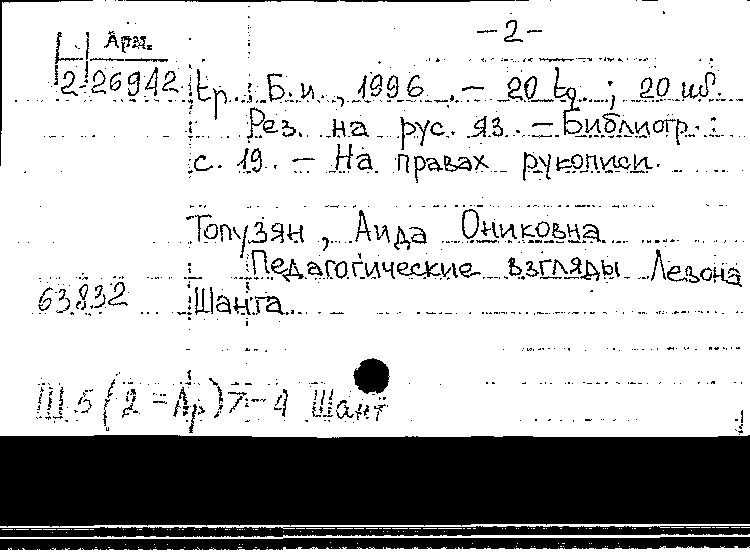 -2-
Арм.
2-26942
Եր. Б.и., 1996. - 20 էջ. ; 20 սմ.
Рез. на рус. яз. - Библиогр.:
с. 19. - На правах рукописи.
Топузян, Аида Ониковна
Педагогические взгляды Левона
63832 Шанта
Ш5(2=Ар)7-4 Шант